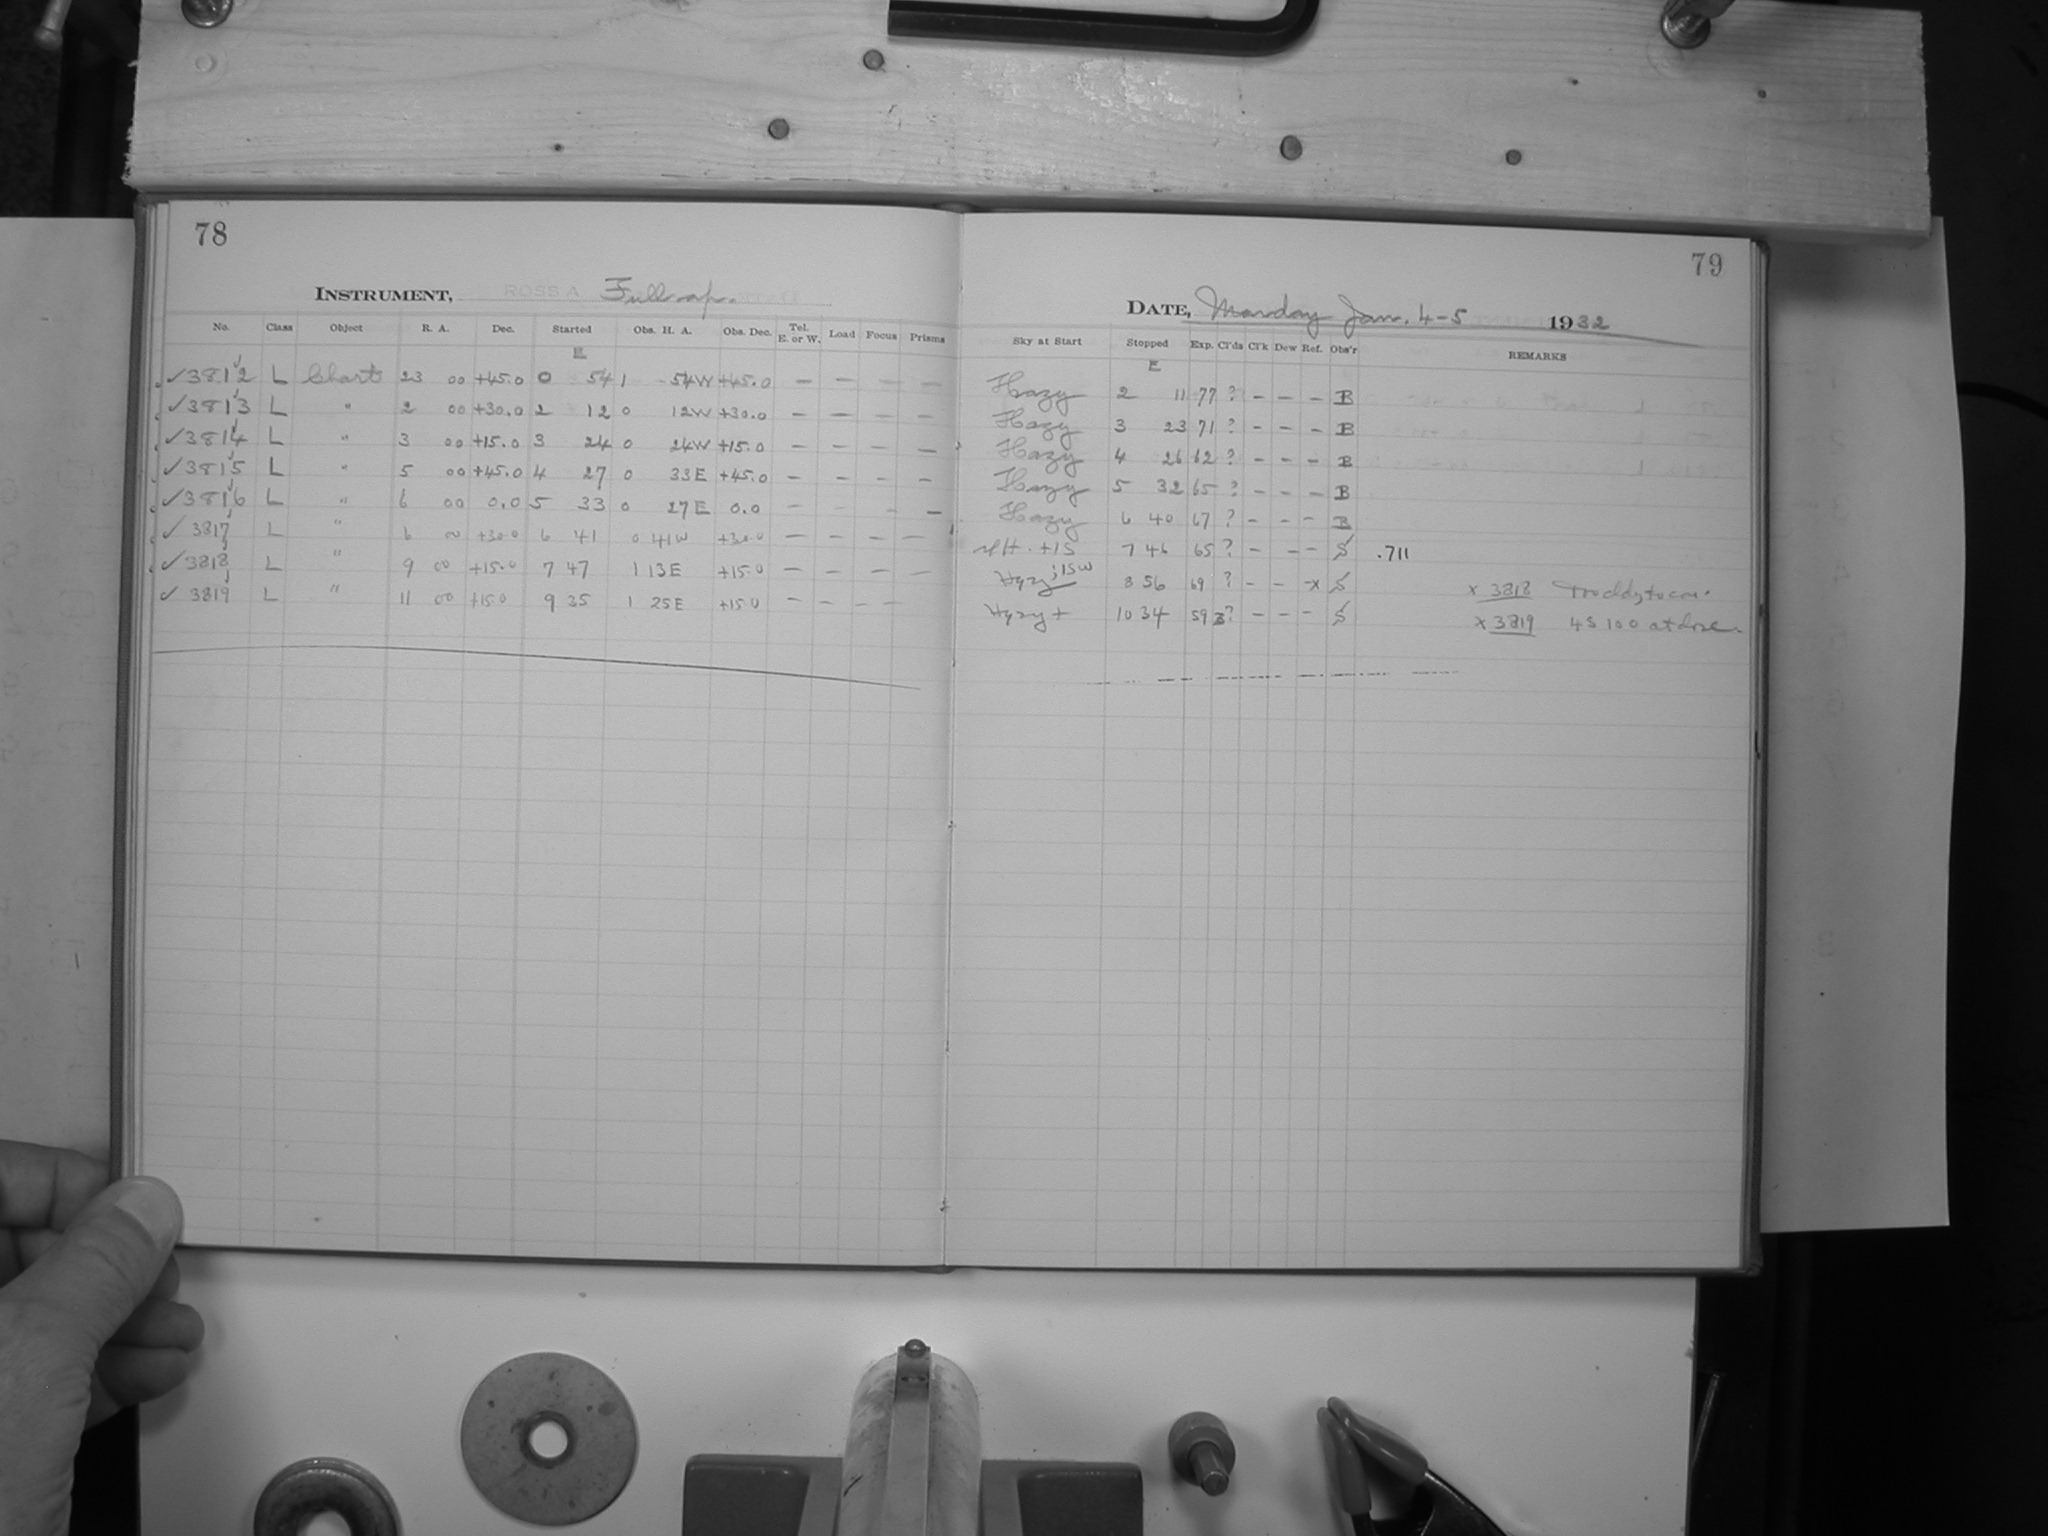 78
INSTRUMENT, ROSS A Full ap.
No. Class Object R. A. Dec. Started Obs. H. A. Obs. Dec. Tel. E. or W. Load Focus Prisms
E
✓3812 L Chart 23 00 +45.0 0 54 1 54W +45.0 — — — —
✓3813 L " 2 00 +30.0 2 12 0 12W +30.0 — — — —
✓3814 L " 3 00 +15.0 3 24 0 24W +15.0 — — — —
✓3815 L " 5 00 +45.0 4 27 0 33E +45.0 — — — —
✓3816 L " 6 00 0.0 5 33 0 27E 0.0 — — — —
✓3817 L " 6 00 +30.0 6 41 0 41W +30.0 — — — —
✓3818 L " 9 00 +15.0 7 47 1 13E +15.0 — — — —
✓3819 L " 11 00 +15.0 9 35 1 25E +15.0 — — — —
79
DATE, Monday Jan. 4-5 1932
Sky at Start Stopped Exp. Cl'ds Cl'k Dew Ref. Obs'r REMARKS
E
Hazy 2 11 77 ? — — — B
Hazy 3 23 71 ? — — — B
Hazy 4 26 62 ? — — — B
Hazy 5 32 65 ? — — — B
Hazy 6 40 67 ? — — — B
+15 7 46 65 ? — — — S .711
Hazy; 15W 8 56 69 ? — — —x S x 3818
Hazy + 10 34 59 3? — — — S x 3819 45 100 at